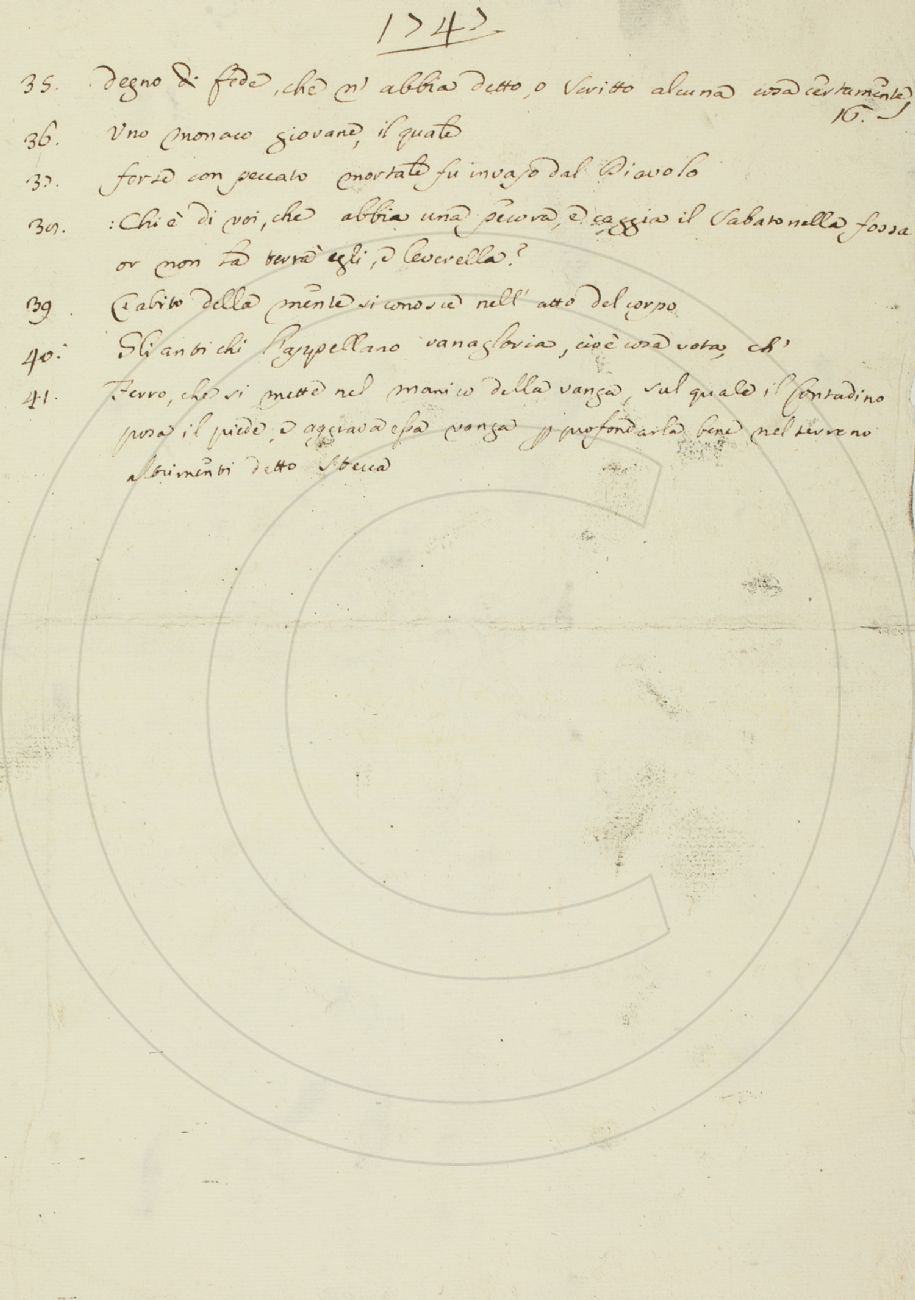 1747
35. degno di fede, che n' abbia detto, o scritto alcuna cosa certamente
16.
36. Uno monaco giovane, il quale
37. forse con peccato mortale fu invaso dal Diavolo
38. : Chi è di voi, che abbia una pecora, e caggia il Sabato nella fossa
or non la terrà egli, e leverella?
39 L'abito della mente si conosce nell' atto del corpo
40. Gli antichi l'appellano vanagloria, cioè cosa vota, ch'
41. Ferro, che si mette nel manico della vanga, sul quale il Contadino
posa il piede, e aggrava essa vanga p profondarla bene nel terreno
altrimenti detto Stecca